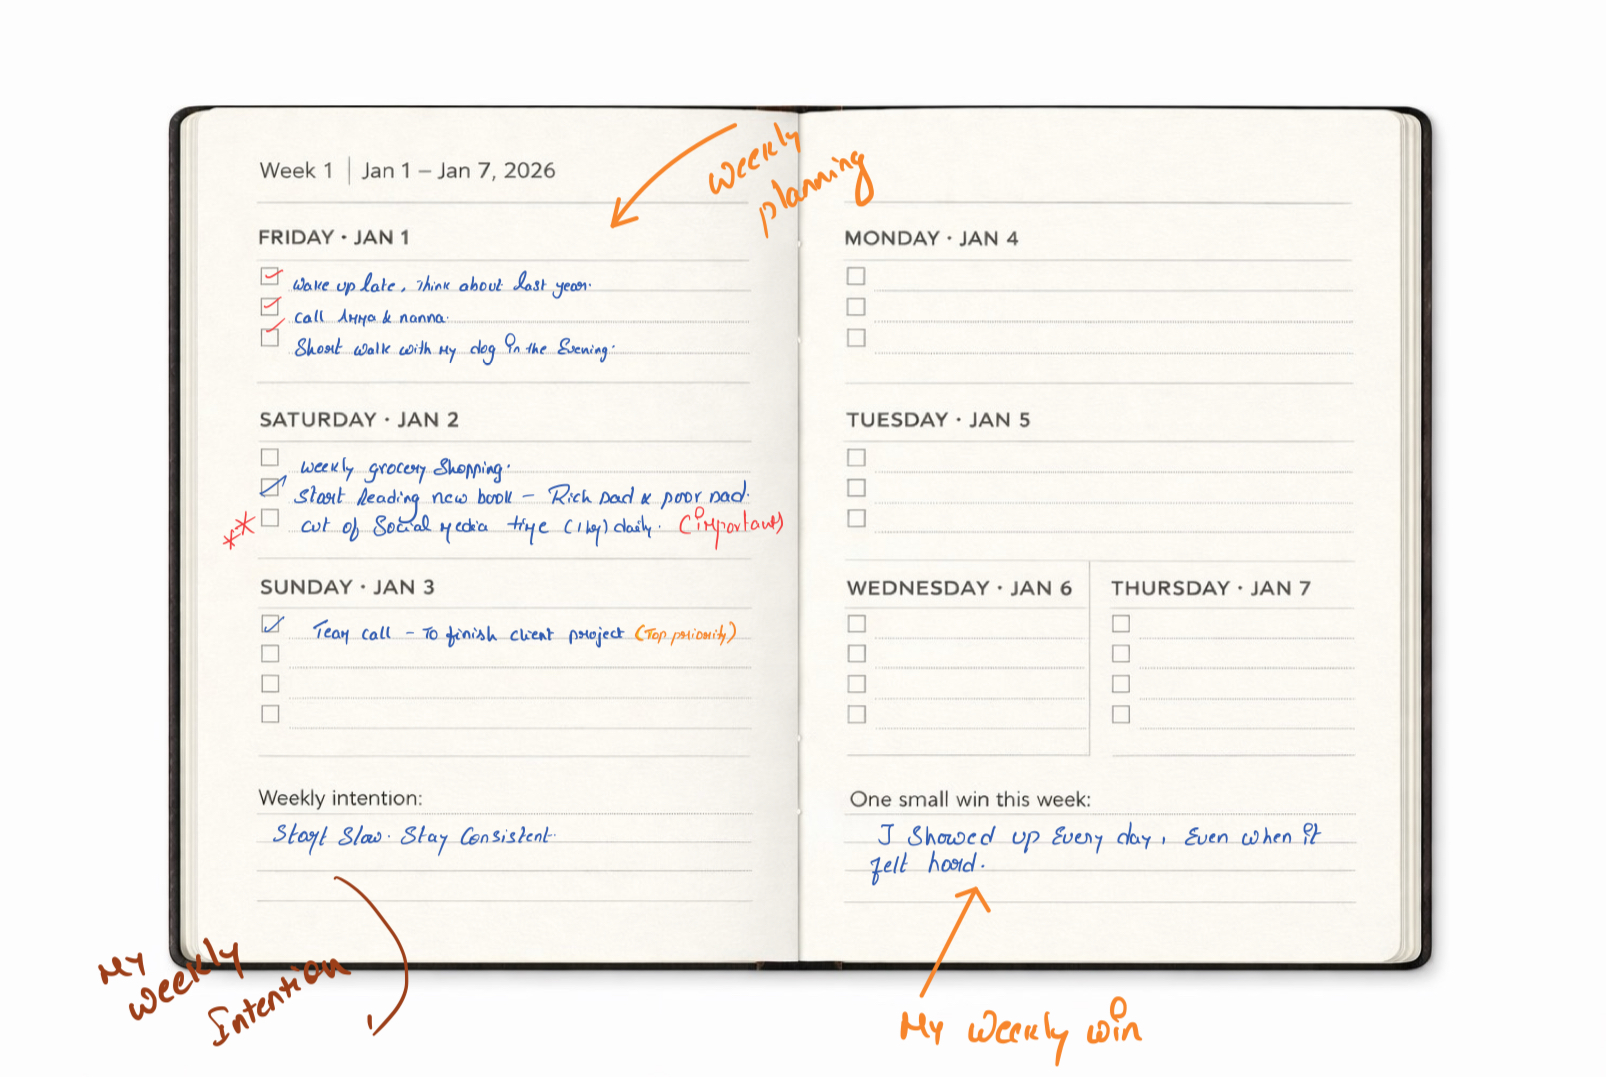 Week 1 | Jan 1 – Jan 7, 2026
weekly
planning
FRIDAY · JAN 1
Wake up late, Think about last year.
Call Amma & nanna.
Short walk with my dog in the Evening.
SATURDAY · JAN 2
Weekly grocery Shopping.
Start Reading new book – Rich Dad & poor Dad.
cut of Social Media time (1 hr) daily. (important)
SUNDAY · JAN 3
Team call – To finish client project (Top priority)
Weekly intention:
Start Slow. Stay Consistent.
My
weekly
Intention
MONDAY · JAN 4
TUESDAY · JAN 5
WEDNESDAY · JAN 6
THURSDAY · JAN 7
One small win this week:
I Showed up Every day, Even when it
felt hard.
My weekly win